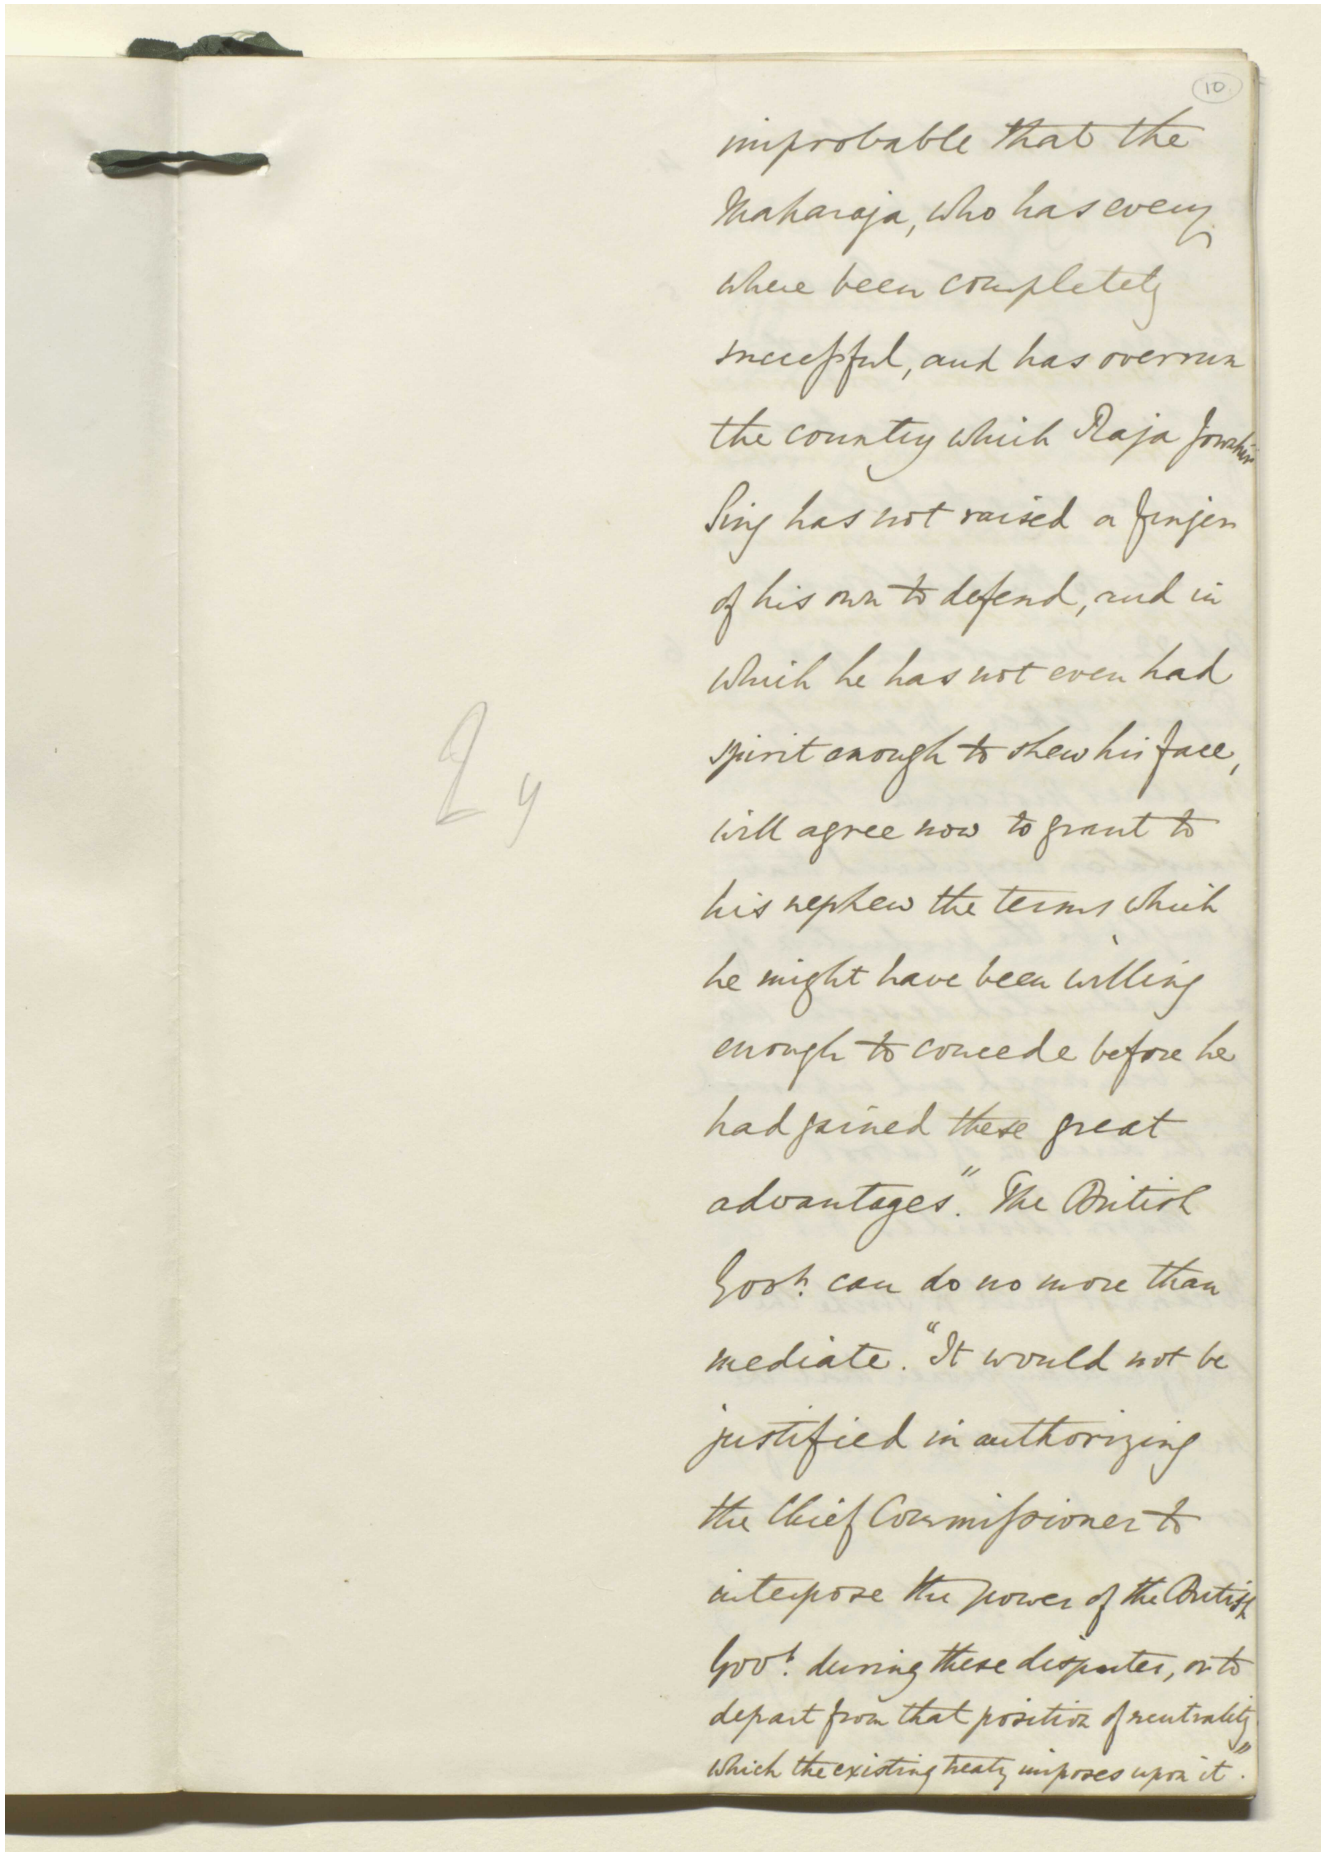 10
improbable that the
Maharaja, who has every
where been completely
successful, and has overrun
the country which Raja Jowahir
Sing has not raised a finger
of his own to defend, and in
which he has not even had
spirit enough to shew his face,
will agree now to grant to
his nephew the terms which
he might have been willing
enough to concede before he
had gained these great
advantages". The British
Govt. can do no more than
mediate. "It would not be
justified in authorizing
the Chief Commissioner to
interpose the power of the British
Govt. during these disputes, or to
depart from that position of neutrality
which the existing treaty imposes upon it".